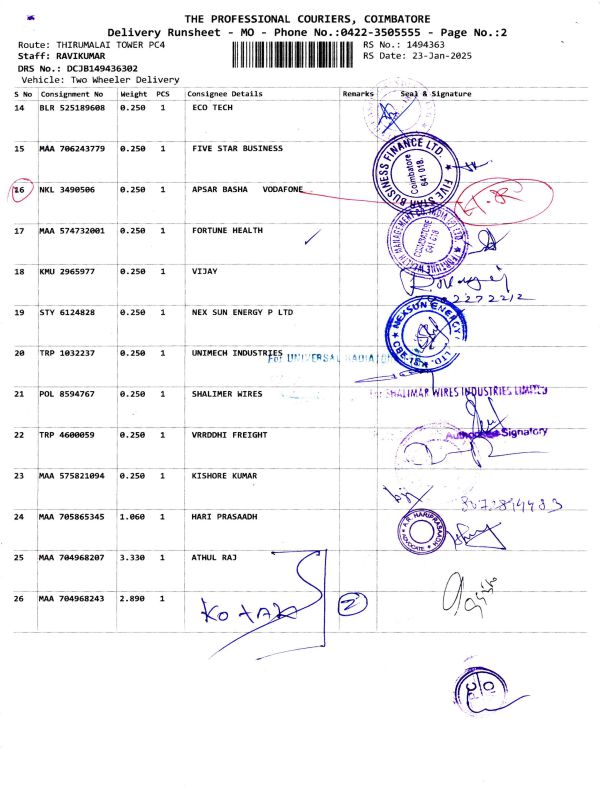 THE PROFESSIONAL COURIERS, COIMBATORE
Delivery Runsheet - MO - Phone No.:0422-3505555 - Page No.:2
Route: THIRUMALAI TOWER PC4
RS No.: 1494363
Staff: RAVIKUMAR
RS Date: 23-Jan-2025
DRS No.: DCJB149436302
Vehicle: Two Wheeler Delivery
S No Consignment No Weight PCS Consignee Details Remarks Seal & Signature
14 BLR 525189608 0.250 1 ECO TECH
15 MAA 706243779 0.250 1 FIVE STAR BUSINESS
FIVE STAR BUSINESS FINANCE LTD.
Coimbatore
641 018.
16 NKL 3490506 0.250 1 APSAR BASHA VODAFONE
17 MAA 574732001 0.250 1 FORTUNE HEALTH
COIMBATORE
641 018
18 KMU 2965977 0.250 1 VIJAY
19 STY 6124828 0.250 1 NEX SUN ENERGY P LTD
NEXSUN ENERGY
20 TRP 1032237 0.250 1 UNIMECH INDUSTRIES
For UNIVERSAL RADIATOR
21 POL 8594767 0.250 1 SHALIMER WIRES
For SHALIMAR WIRES INDUSTRIES LIMITED
22 TRP 4600059 0.250 1 VRRDDHI FREIGHT
Authorised Signatory
23 MAA 575821094 0.250 1 KISHORE KUMAR
24 MAA 705865345 1.060 1 HARI PRASAADH
A.R. HARIPRASAADH
ADVOCATE
25 MAA 704968207 3.330 1 ATHUL RAJ
26 MAA 704968243 2.890 1
KOTAK
2